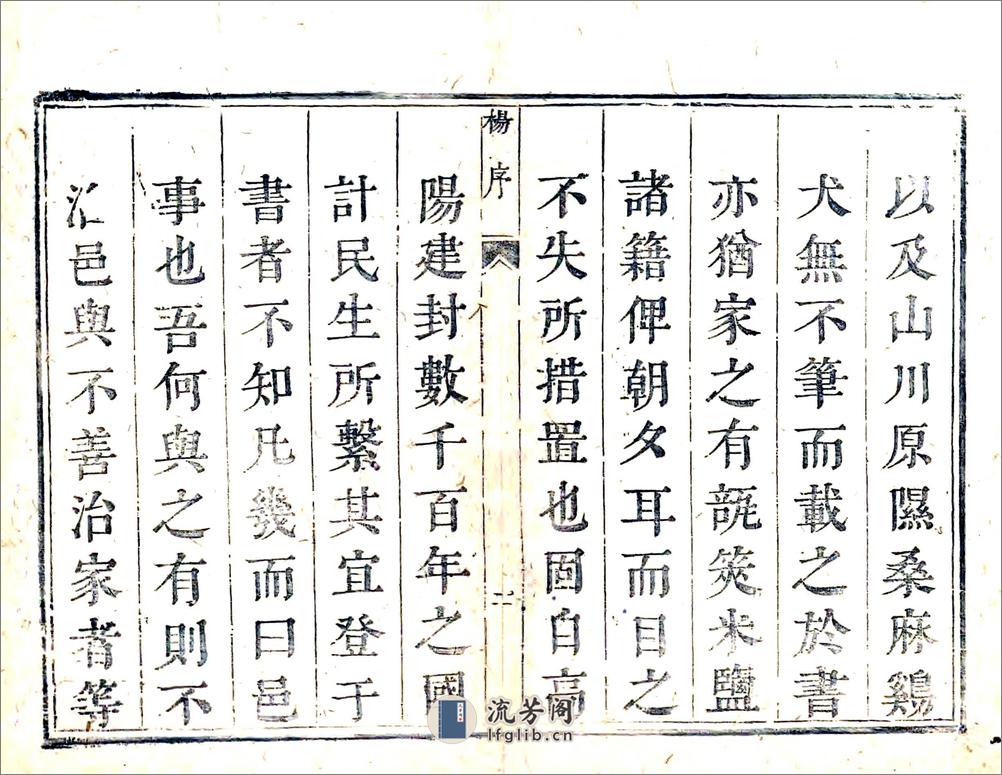 以及山川原隰桑麻鷄
犬無不筆而載之於書
亦猶家之有瓿筴米鹽
諸籍俾朝夕耳而目之
不失所措置也固自高
楊序
二
陽建封數千百年之國
計民生所繫其宜登于
書者不知凡幾而曰邑
事也吾何與之有則不
邑與不善治家者等
流芳阁
lfglib.cn